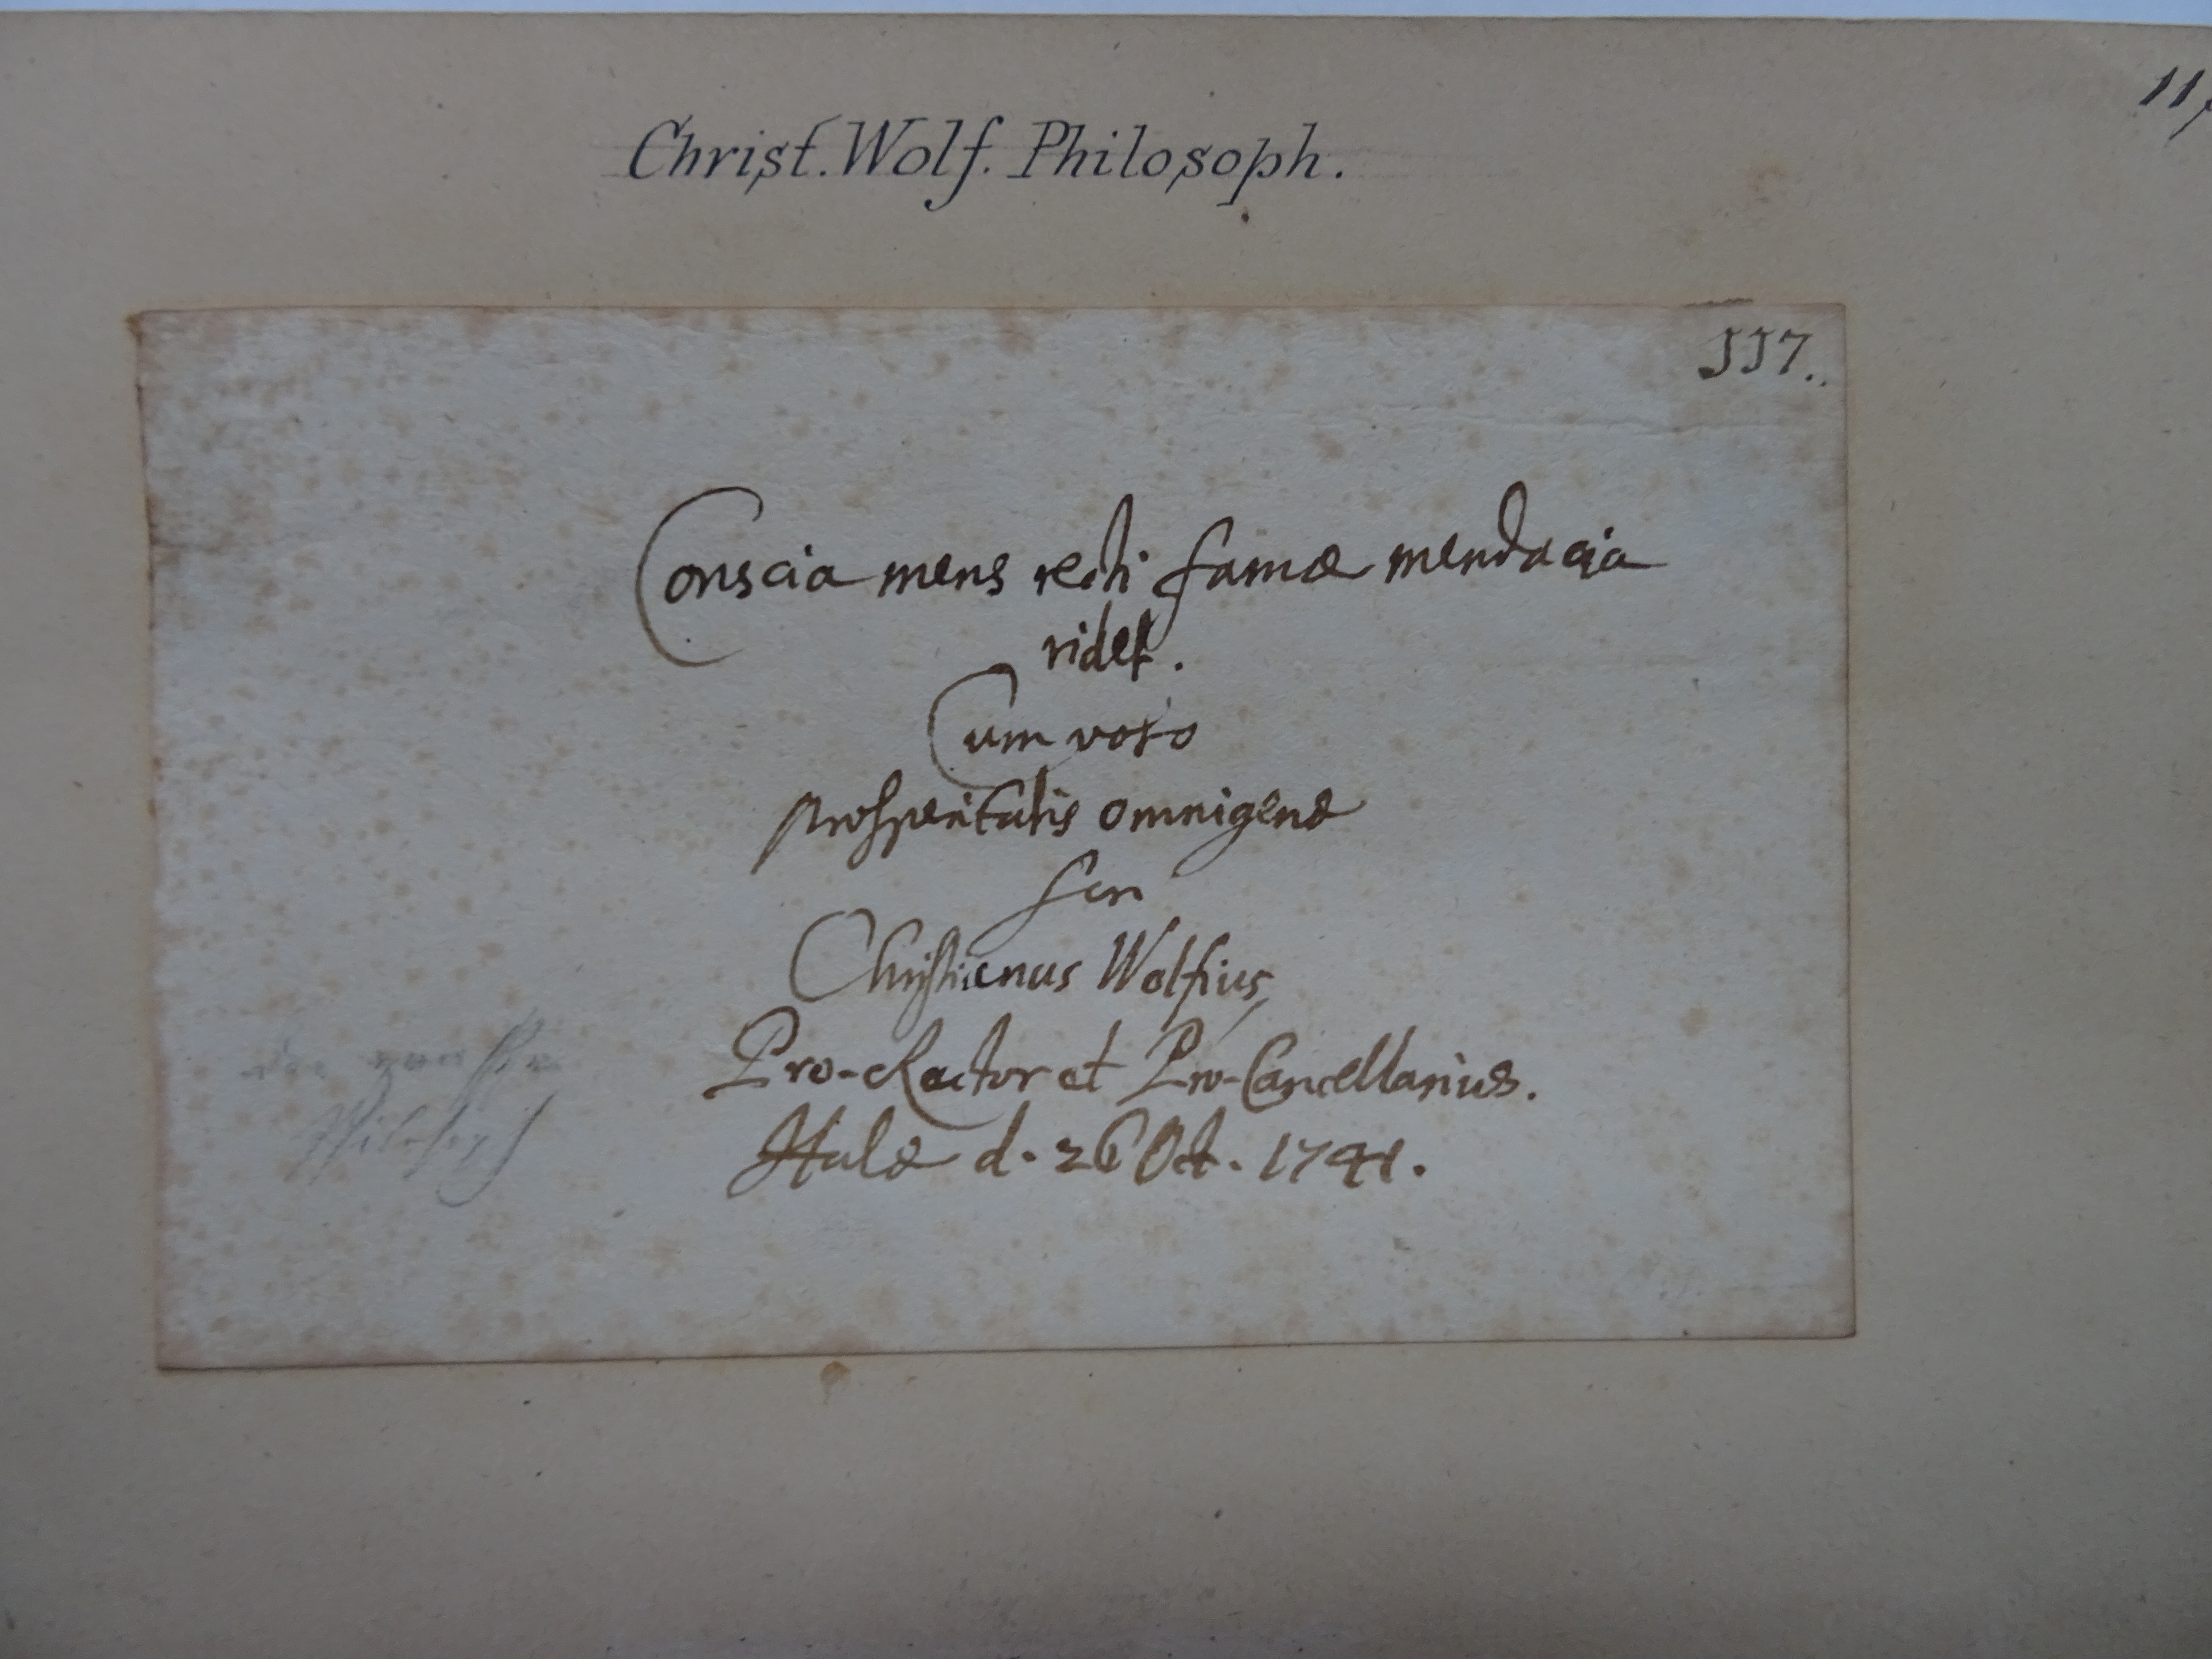 Christ. Wolf. Philosoph.
117.
Conscia mens recti famæ mendacia
ridet.
Cum voto
prosperitatis omnigenæ
scr
Christianus Wolfius,
Pro-Rector et Pro-Cancellarius.
Halæ d. 26 Oct. 1741.
Philosoph